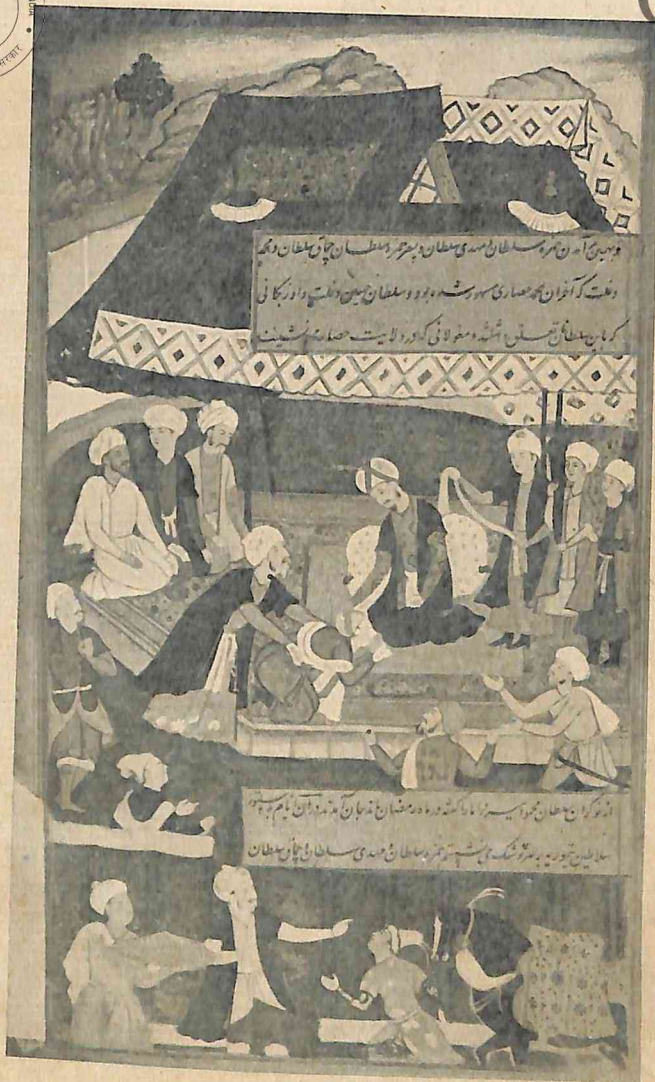 و بهمین آمدن حمزه سلطان و مهدی سلطان و پسر حمزه سلطان چپاق سلطان و محمد
دغلت که آخران محمد حصاری مشهور شده بود و سلطان حسین دغلت و اوزبکانی
که باین سلطانان تعلق داشتند و مغولانی که در ولایت حصار می نشینند
از نوکران سلطان محمود میرزا مارا گفته در ماه رمضان اندجان آمدند در آن ایام
سلاطین تیموریه بر توشک می نشستم حمزه سلطان و مهدی سلطان و چپاق سلطان
सरकार